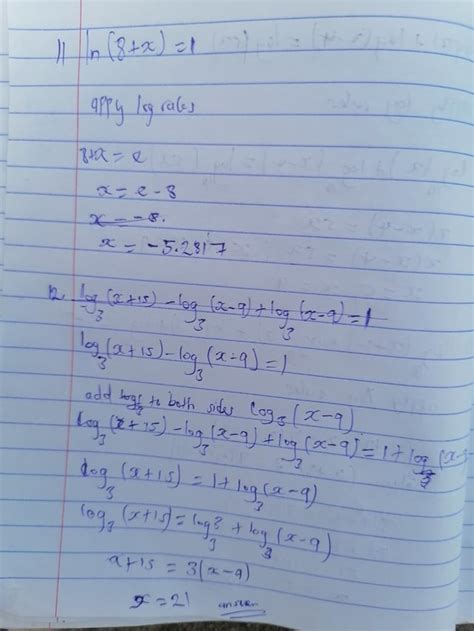 11 ln(8+x) = 1
apply log rules
8+x = e
x = e - 8
x = -8.
x = -5.2817
12. log₃(x+15) - log₃(x-9) + log₃(x-9) = 1
log₃(x+15) - log₃(x-9) = 1
add to both sides log₃(x-9)
log₃(x+15) - log₃(x-9) + log₃(x-9) = 1 + log₃(x-
log₃(x+15) = 1 + log₃(x-9)
log₃(x+15) = log₃3 + log₃(x-9)
x+15 = 3(x-9)
x = 21 answer